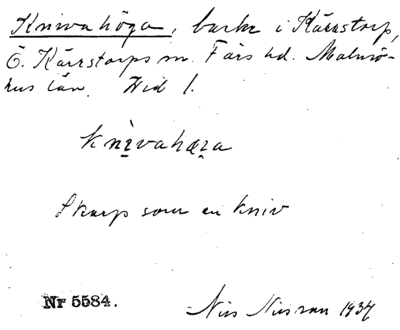 Knivahöga, backe i Kärrstorp,
Ö. Kärrstorps sn. Färs hd. Malmö-
hus län. Hid 1.
knìvahøga
Skarp som en kniv
Nr 5584.
Nils Nilsson 1937